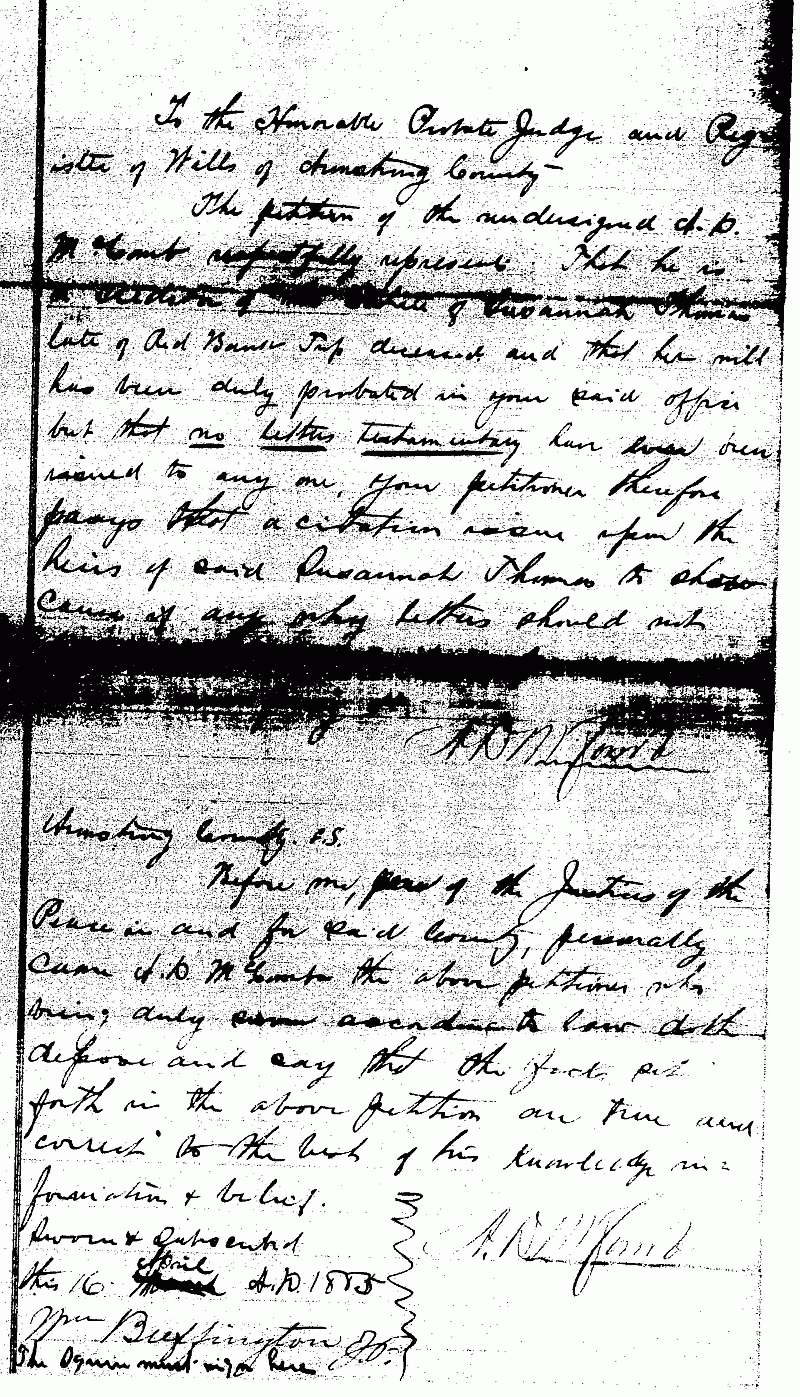 To the Honorable Probate Judge and Reg-
ister of Wills of Armstrong County
The petition of the undersigned A. D.
McComb respectfully represents That he is
a creditor of the Estate of Susannah Thomas
late of Red Bank Twp deceased, and that her will
has been duly probated in your said office
but that no letters testamentary have ever been
issued to any one, your petitioner therefore
prays that a citation issue upon the
heirs of said Susannah Thomas to show
cause if any why letters should not
A D McComb
Armstrong County. S.S.
Before me, one of the Justices of the
Peace in and for said County, personally
came A. D McComb the above petitioner who
being duly sworn according to law doth
depose and say that the facts set
forth in the above petition are true and
correct to the best of his knowledge in=
formation & belief.
Sworn & Subscribed
April
this 16 March A.D. 1885
A. D McComb
Wm Buffington J.P.
The Squire must sign here